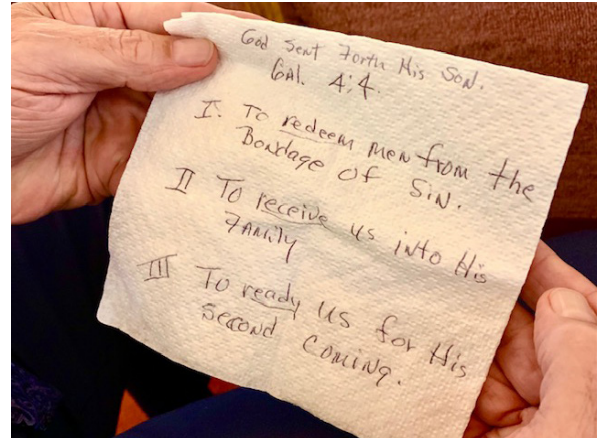 God Sent Forth His Son.
Gal. 4:4.
I. To redeem men from the
Bondage Of Sin.
II To receive us into His
Family
III To ready us for His
Second Coming.